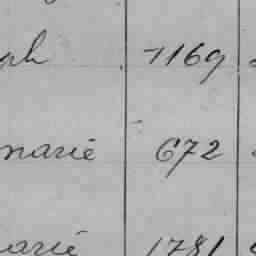 1169
marie 672
arie 1781